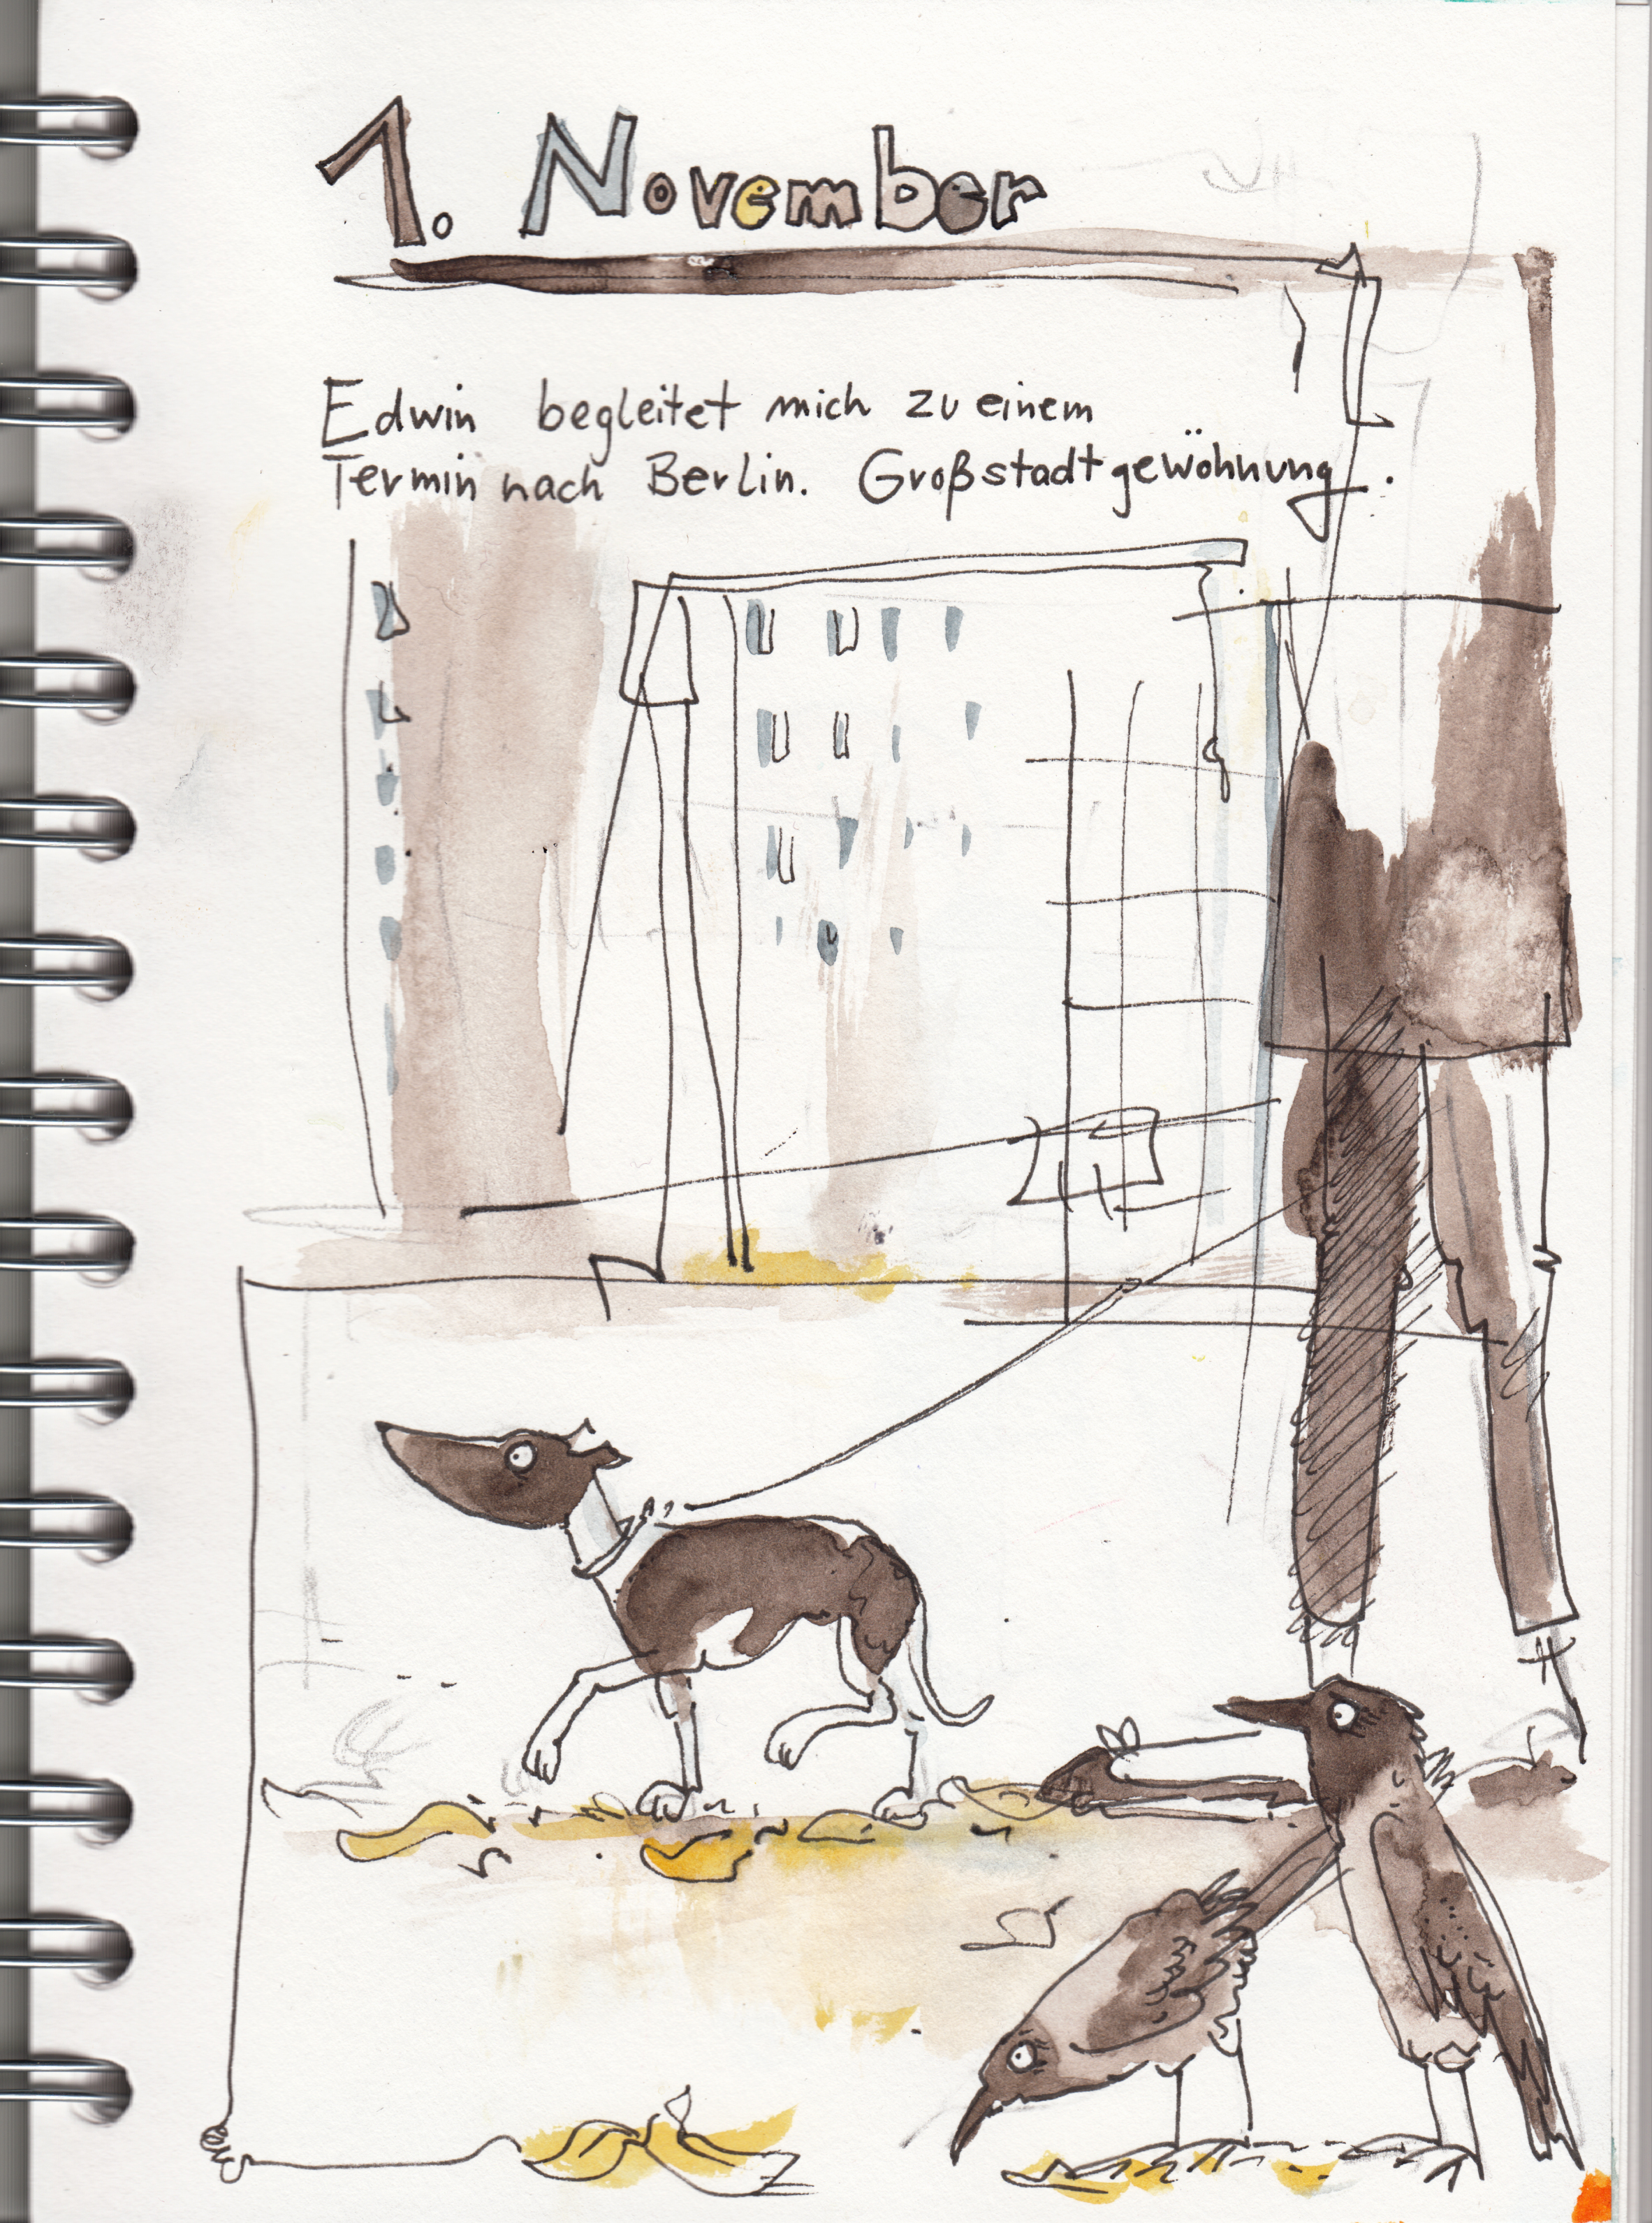 1. November
Edwin begleitet mich zu einem
Termin nach Berlin. Großstadtgewöhnung.